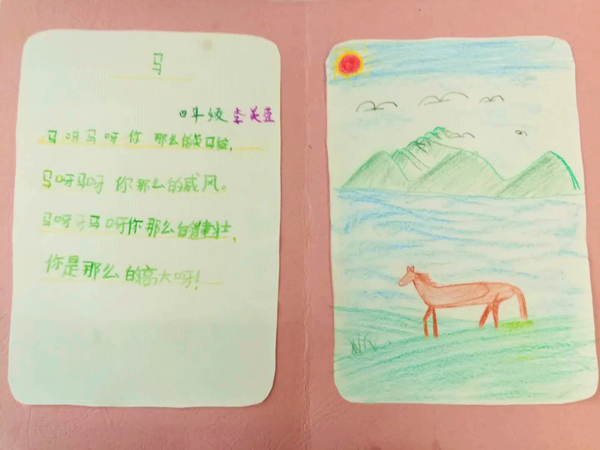 马
四年级 李美萱
马呀马呀你那么的
马呀马呀你那么的威风。
马呀马呀你那么的健壮,
你是那么的高大呀!